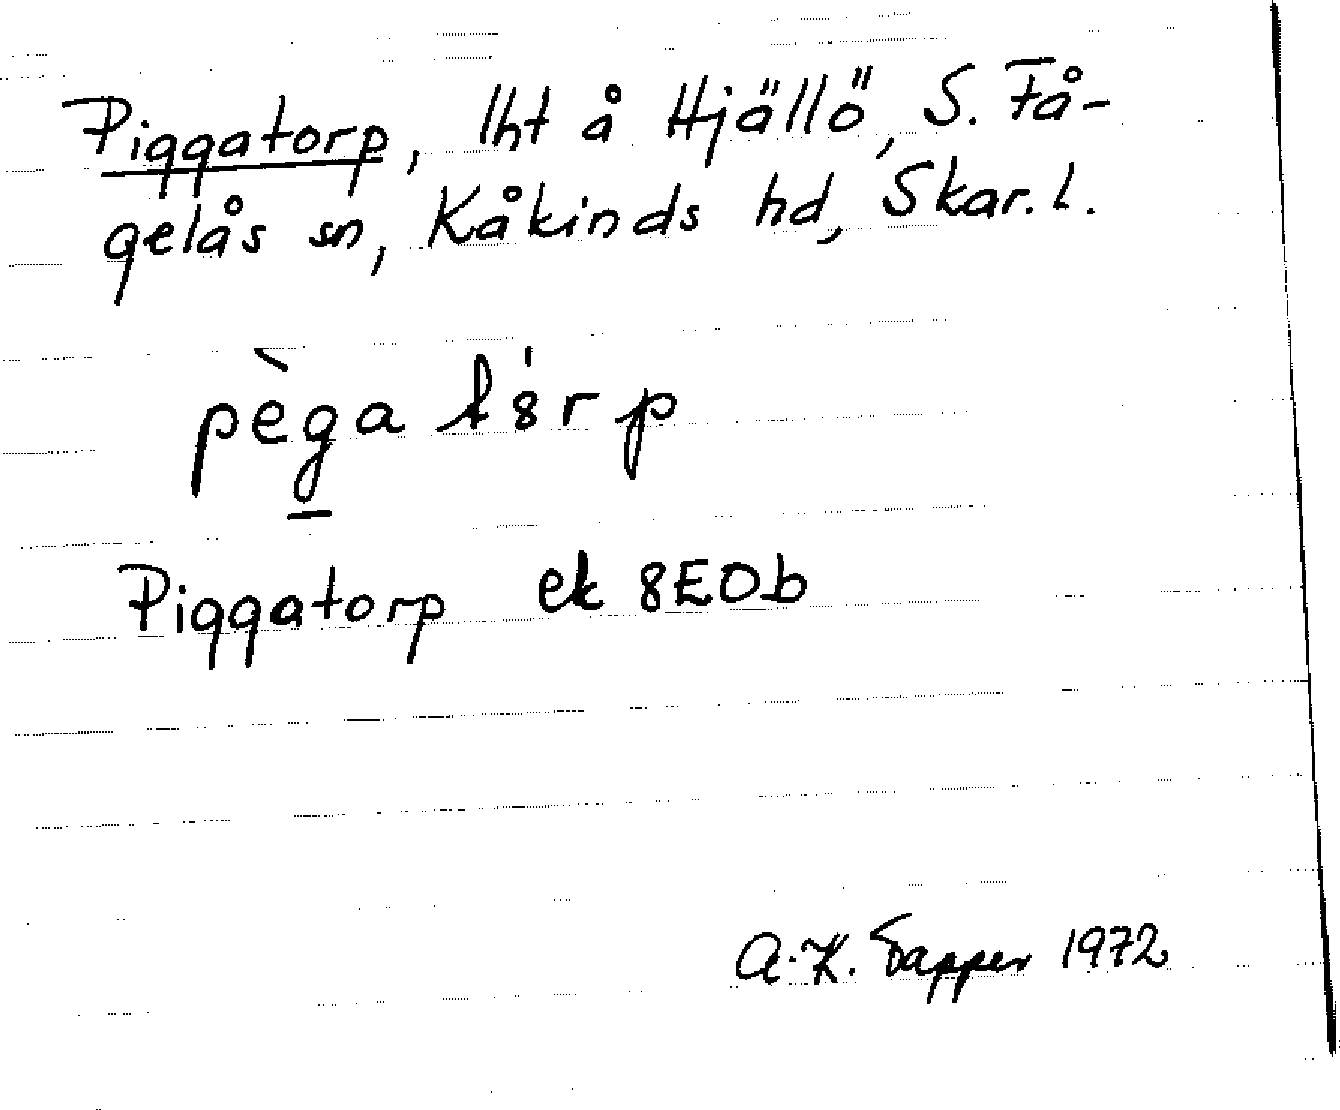 Piggatorp, lht å Hjällö, S. Få-
gelås sn, Kåkinds hd, Skar. l.
pèga
Piggatorp ek 8E0b
A.-K. Tapper 1972